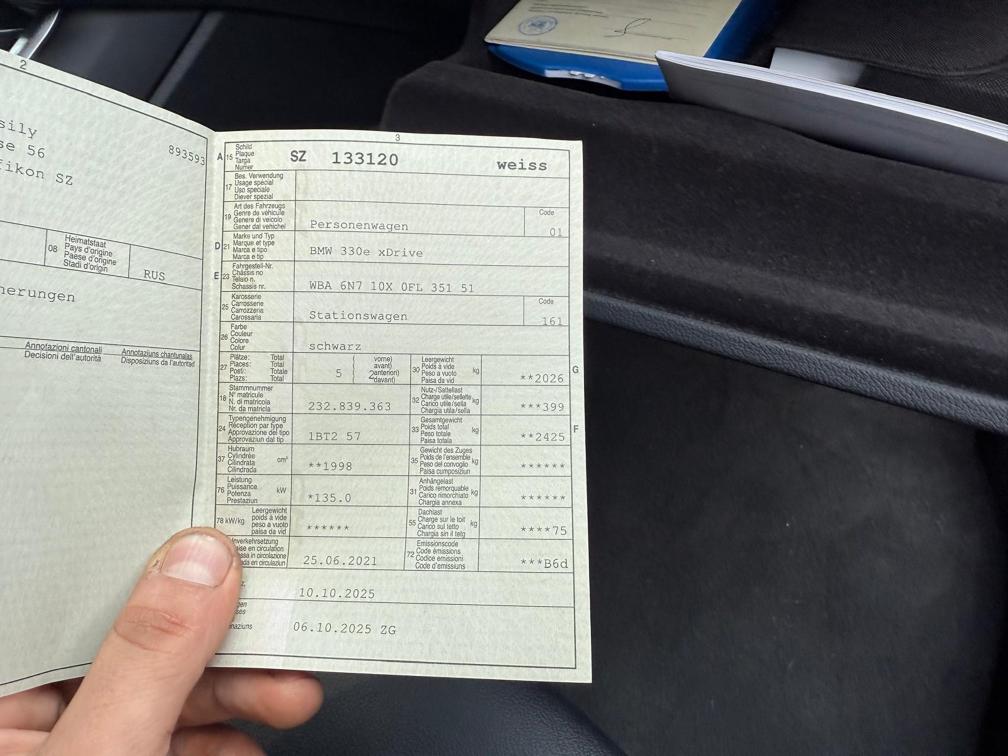 2
sily
se 56
ikon SZ
893593
08 Heimatstaat
Pays d'origine
Paese d'origine
Stadi d'origin
RUS
nerungen
Annotazioni cantonali
Decisioni dell'autorità
Annotaziuns chantunalas
Disposiziuns da l'autoritad
3
A 15 Schild
Plaque
Targa
Numer
SZ 133120 weiss
17 Bes. Verwendung
Usage spécial
Uso speciale
Diever spezial
19 Art des Fahrzeugs
Genre de véhicule
Genere di veicolo
Gener dal vehichel
Personenwagen
Code
01
D 21 Marke und Typ
Marque et type
Marca e tipo
Marca e tip
BMW 330e xDrive
E 23 Fahrgestell-Nr.
Châssis no
Telaio n.
Schassis nr.
WBA 6N7 10X 0FL 351 51
25 Karosserie
Carrosserie
Carrozzeria
Carossaria
Stationswagen
Code
161
26 Farbe
Couleur
Colore
Colur
schwarz
27 Plätze: Total
Places: Total
Posti: Totale
Plazs: Total
5
( vorne)
avant)
2 anteriori)
davant)
30 Leergewicht
Poids à vide
Peso a vuoto
Paisa da vid
kg
**2026
G
18 Stammnummer
N° matricule
N. di matricola
Nr. da matricla
232.839.363
32 Nutz-/Sattellast
Charge utile/sellette
Carico utile/sella
Chargia utila/sella
kg
***399
24 Typengenehmigung
Réception par type
Approvazione del tipo
Approvaziun dal tip
1BT2 57
33 Gesamtgewicht
Poids total
Peso totale
Paisa totala
kg
**2425
F
37 Hubraum
Cylindrée
Cilindrata
Cilindrada
cm³
**1998
35 Gewicht des Zuges
Poids de l'ensemble
Peso del convoglio
Paisa cumposiziun
kg
******
76 Leistung
Puissance
Potenza
Prestaziun
kW
*135.0
31 Anhängelast
Poids remorquable
Carico rimorchiato
Chargia annexa
kg
******
78 kW/kg
Leergewicht
poids à vide
peso a vuoto
paisa da vid
******
55 Dachlast
Charge sur le toit
Carico sul tetto
Chargia sin il tetg
kg
****75
Inverkehrsetzung
ise en circulation
ssa in circolazione
ada en circulaziun
25.06.2021
72 Emissionscode
Code émissions
Codice emissioni
Code d'emissiuns
***B6d
10.10.2025
06.10.2025 ZG